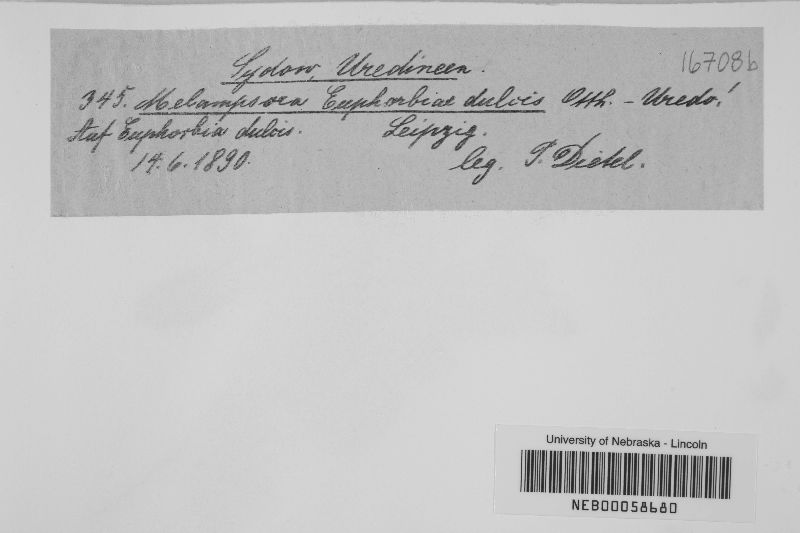 Sydow, Uredineen.
167086
345. Melampsora Euphorbiae dulcis Otth. - Uredo!
Auf Euphorbia dulcis. Leipzig.
14.6.1890. leg. P. Dietel.
University of Nebraska - Lincoln
NEB00058680